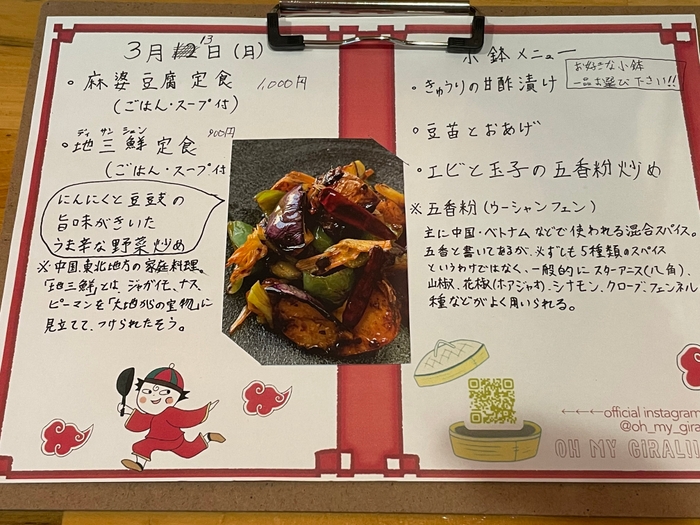 3月13日(月)
・麻婆豆腐定食 1,000円
(ごはん・スープ付)
ディ サン シェン
・地三鮮定食 900円
(ごはん・スープ付
にんにくと豆豉の
旨味がきいた
うま辛な野菜炒め
※中国、東北地方の家庭料理。
「地三鮮」とは、ジャガイモ、ナス、
ピーマンを「大地からの宝物」に
見立てて、つけられたそう。
小鉢メニュー
お好きな小鉢
一品お選び下さい!!
・きゅうりの甘酢漬け
・豆苗とおあげ
・エビと玉子の五香粉炒め
※五香粉(ウーシャンフェン)
主に中国・ベトナムなどで使われる混合スパイス。
五香と書いてあるが、必ずしも5種類のスパイス
というわけではなく、一般的にスターアニス(八角)、
山椒、花椒(ホアジャオ)、シナモン、クローブ、フェンネル
種などがよく用いられる。
←←←official instagram
@oh_my_gira
OH MY GIRAL!!